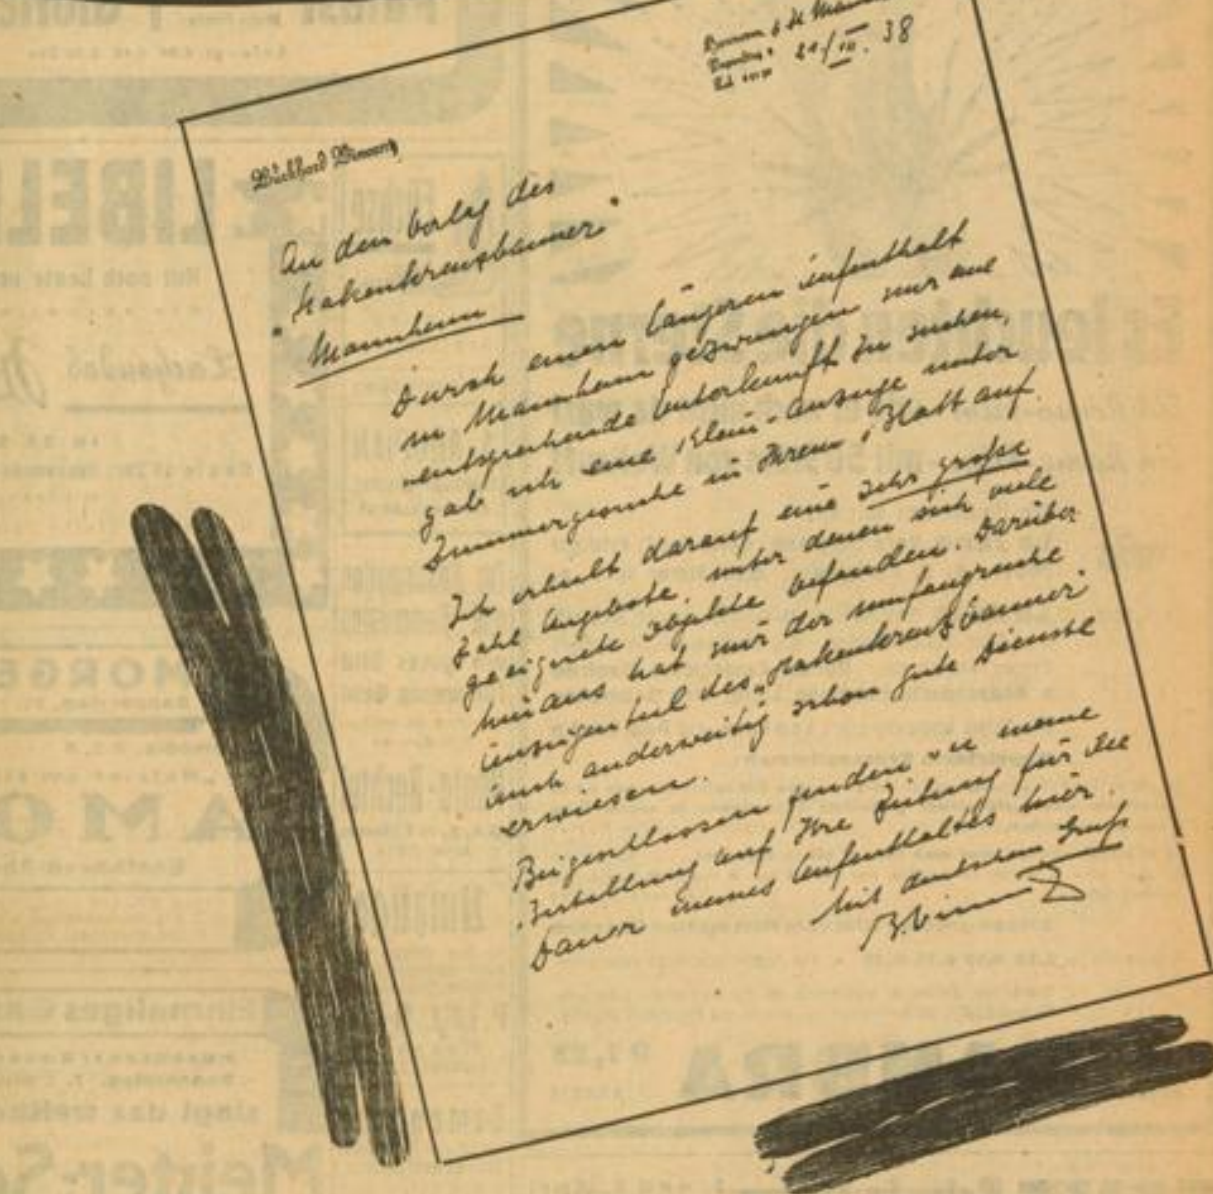 21/III. 38
Burkhard
An den Verlag des
"Hakenkreuzbanner"
Mannheim
Durch einen längeren Aufenthalt
in Mannheim gezwungen mir eine
entsprechende Unterkunft zu suchen,
gab ich eine Klein-Anzeige unter
Zimmergesuche in Ihrem Blatt auf.
Ich erhielt darauf eine sehr große
Zahl Angebote, unter denen sich viele
geeignete Objekte befanden. Darüber
hinaus hat mir der umfangreiche
Anzeigenteil des "Hakenkreuzbanner"
auch anderweitig schon gute Dienste
erwiesen.
Beigeschlossen finden Sie meine
Bestellung auf Ihre Zeitung für die
Dauer meines Aufenthaltes hier.
Mit deutschem Gruß